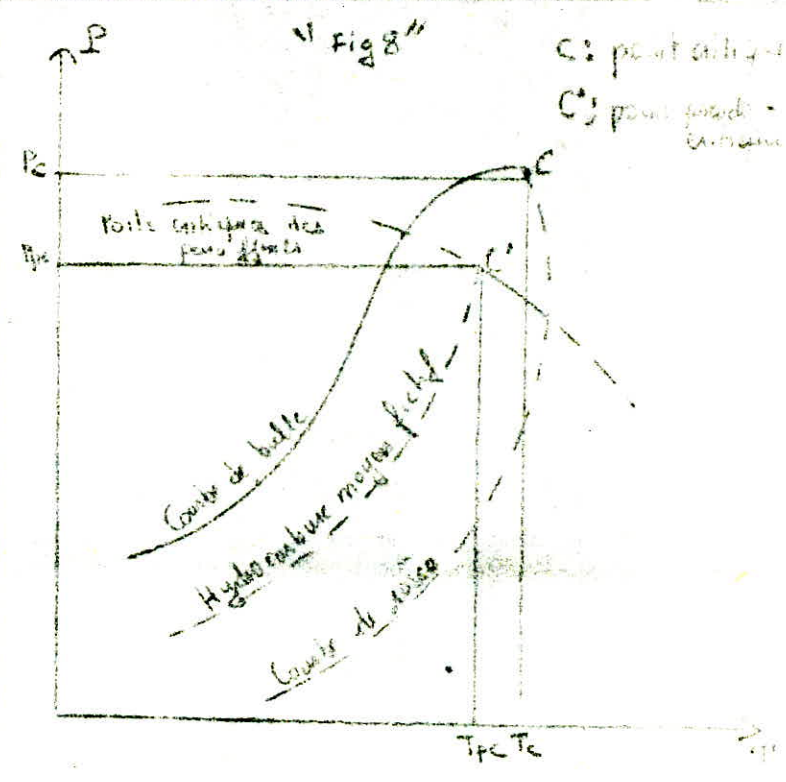 P
"Fig 8"
C: point critique
C': point pseudo-
critique
Pc
C
Points critiques des
Ppc
C'
Courbe de bulle
Hydrocarbure moyen fictif
Courbe de rosée
Tpc Tc